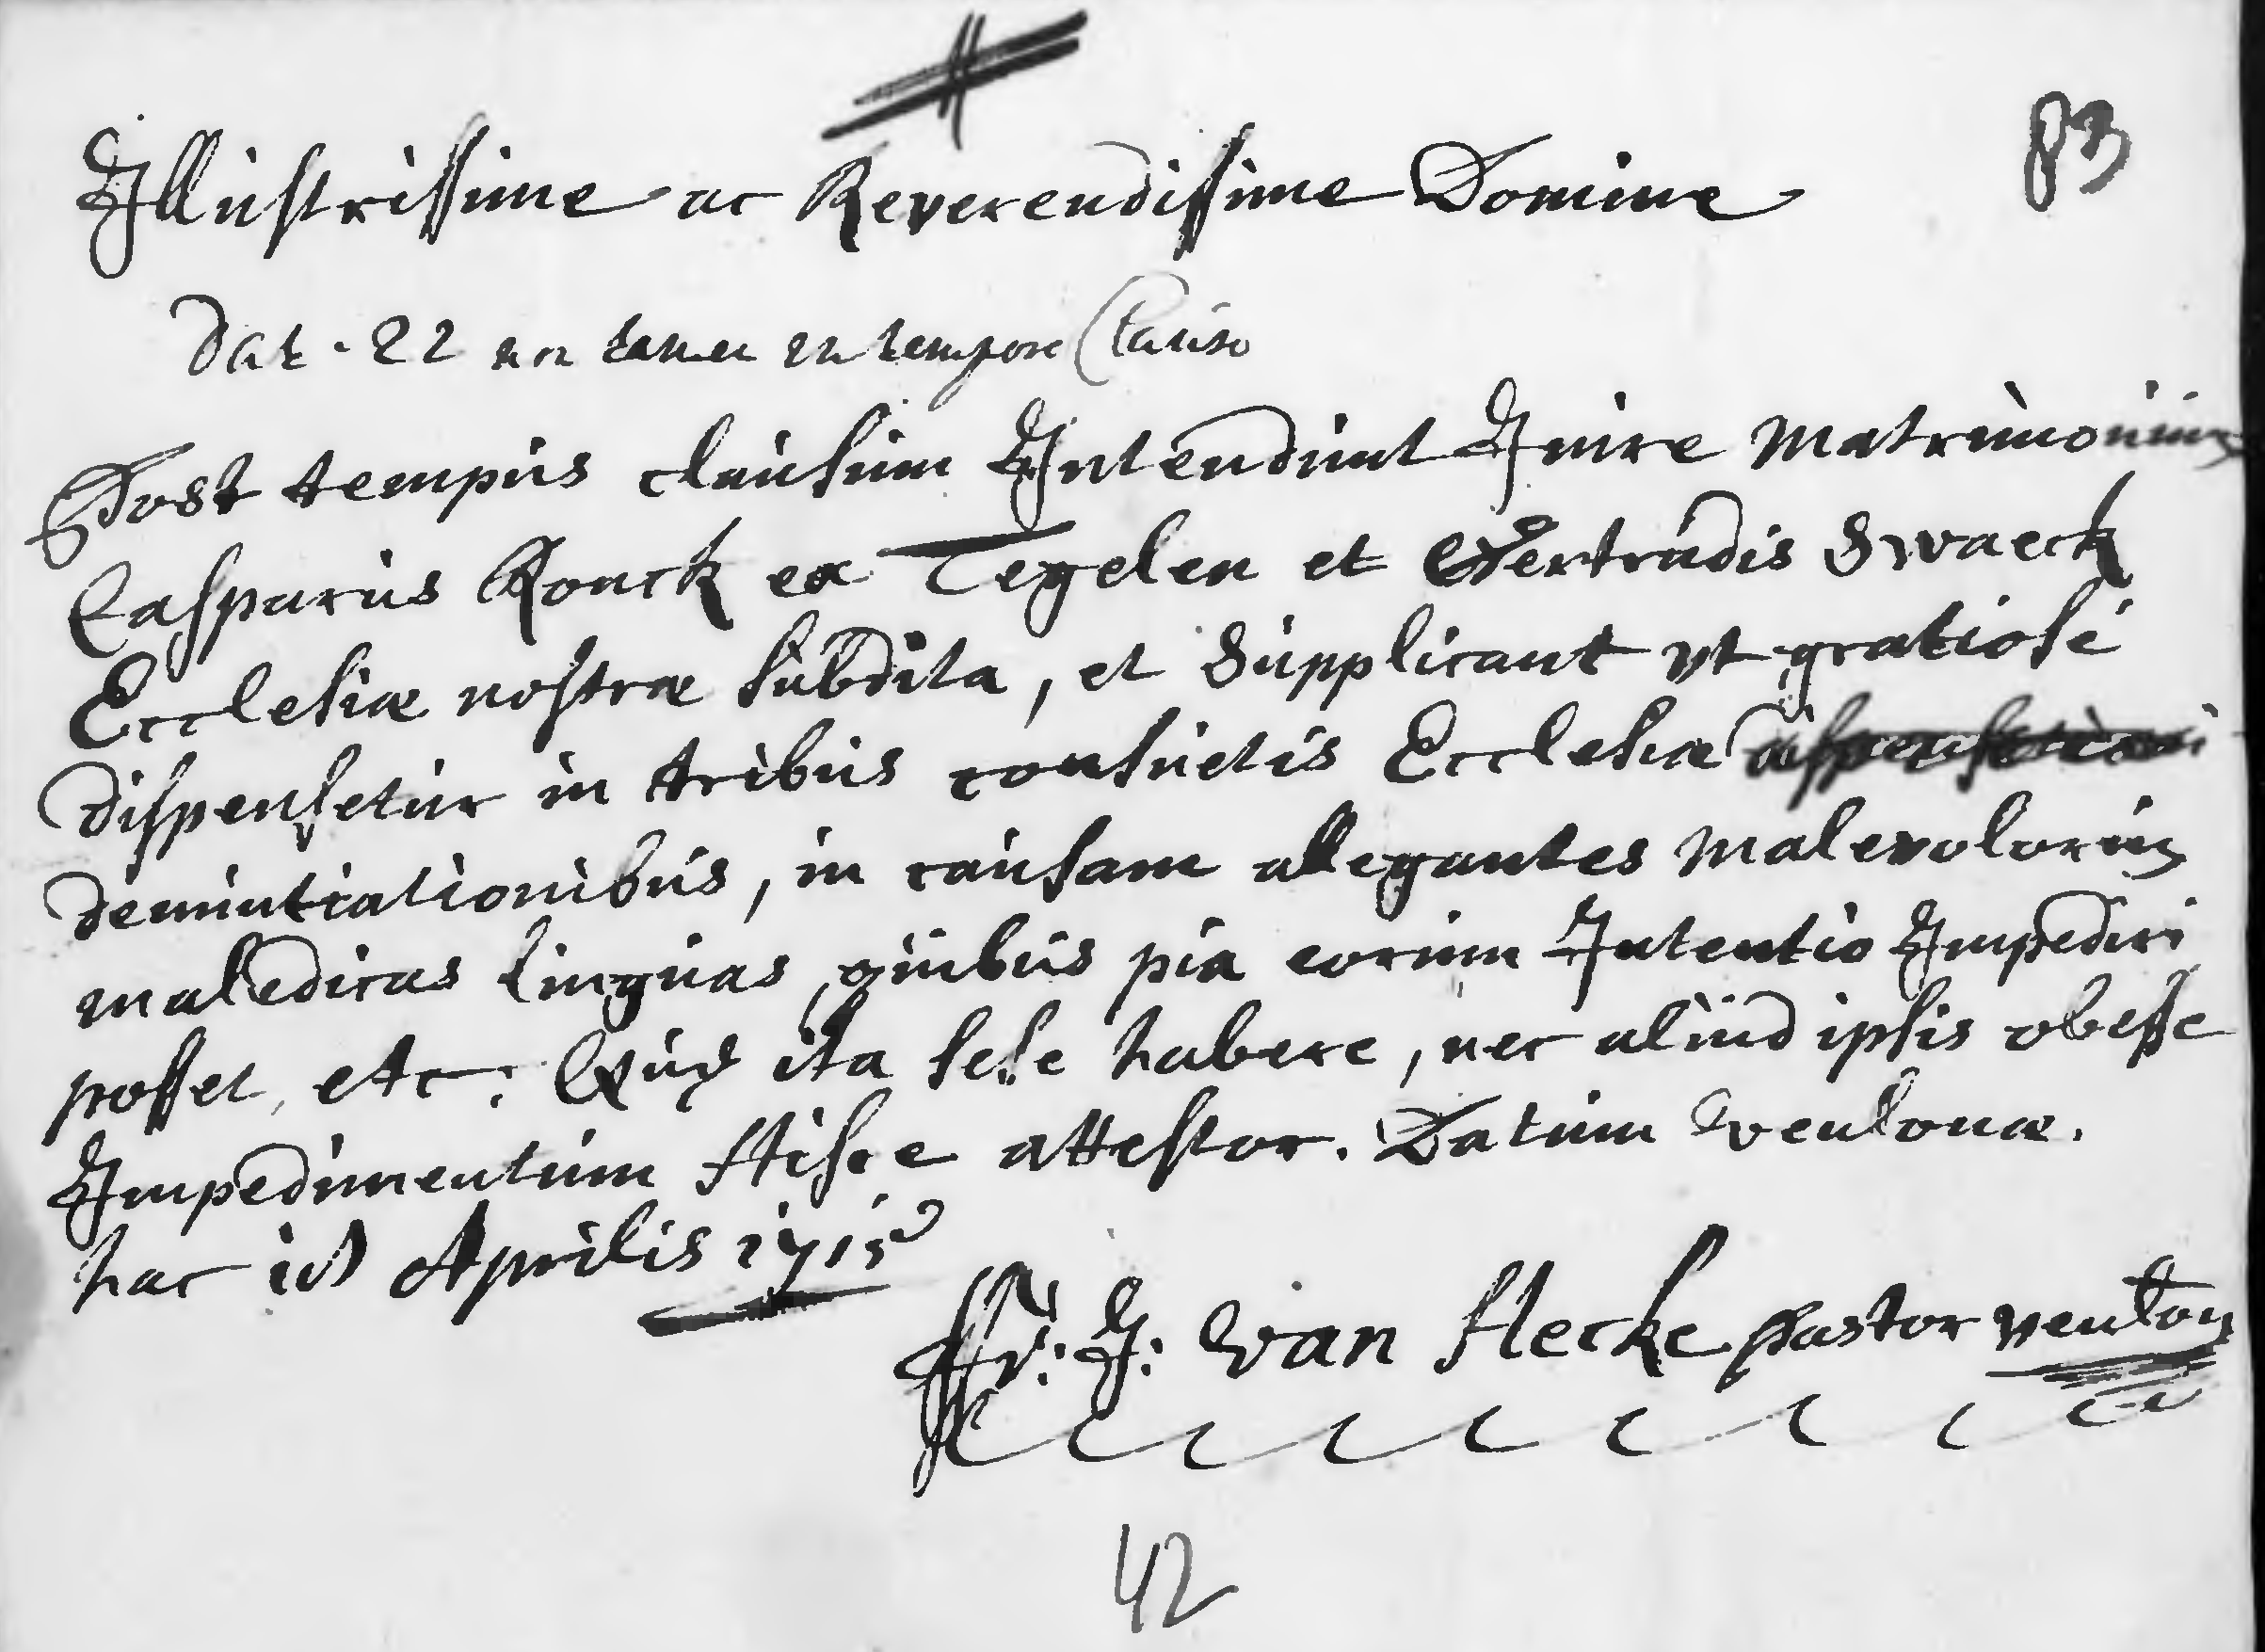 83
Illustrissime ac Reverendissime Domine
Dat. 22 non tamen in tempore Clauso
Post tempus clausum Intendunt Inire Matrimonium
Casparus Konck ex Tegelen et Gertrudis Swaeck
Ecclesiæ nostræ subdita, et Supplicant vt gratiosé
dispensetur in tribus consuetis Ecclesiæ
denuntiationibus, in causam allegantes Malevolorum
maledicas linguas, quibus pia eorum Intentio Impediri
posset, etc: Quæ ita sese habere, nec aliud ipsis obesse
Impedimentum Hisce attestor. Datum Venlonæ.
hac Aprilis 1715
Fr: J: Van Hecke pastor venlon
42